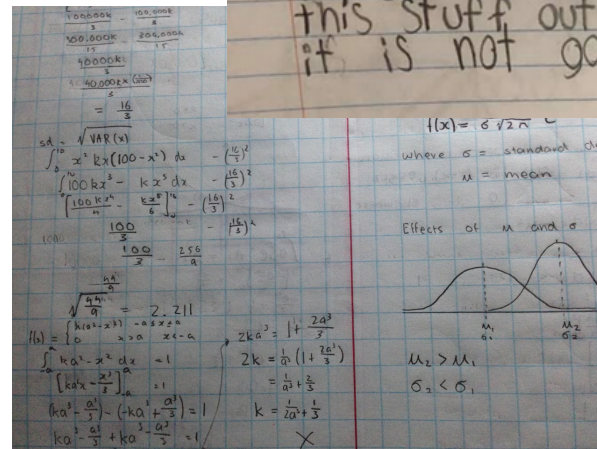 this stuff out
it is not go
100000k/3 - 100,000k/5
40000k/3
= 16/3
sd = √VAR(x)
∫ x² kx(100-x²) dx - (16/3)²
∫ 100kx³ - kx⁵ dx - (16/3)²
[100kx⁴/4 - kx⁶/6] - (16/3)²
100/3 - (16/3)²
100/3 - 256/9
44/9
√44/9 = 2.211
f(x) = { k(a²-x²) -a≤x≤a
0 x>a x<-a
∫ ka²-x² dx = 1
[ka²x - x³/3] = 1
(ka³ - a³/3) - (-ka³ + a³/3) = 1
ka³ - a³/3 + ka³ - a³/3 = 1
2ka³ = 1 + 2a³/3
2k = 1/a³ (1 + 2a³/3)
= 1/a³ + 2/3
k = 1/2a³ + 1/3
X
f(x) = σ√2π
where σ = standard d
μ = mean
Effects of μ and σ
μ₁
σ₁
μ₂
σ₂
μ₂ > μ₁
σ₂ < σ₁